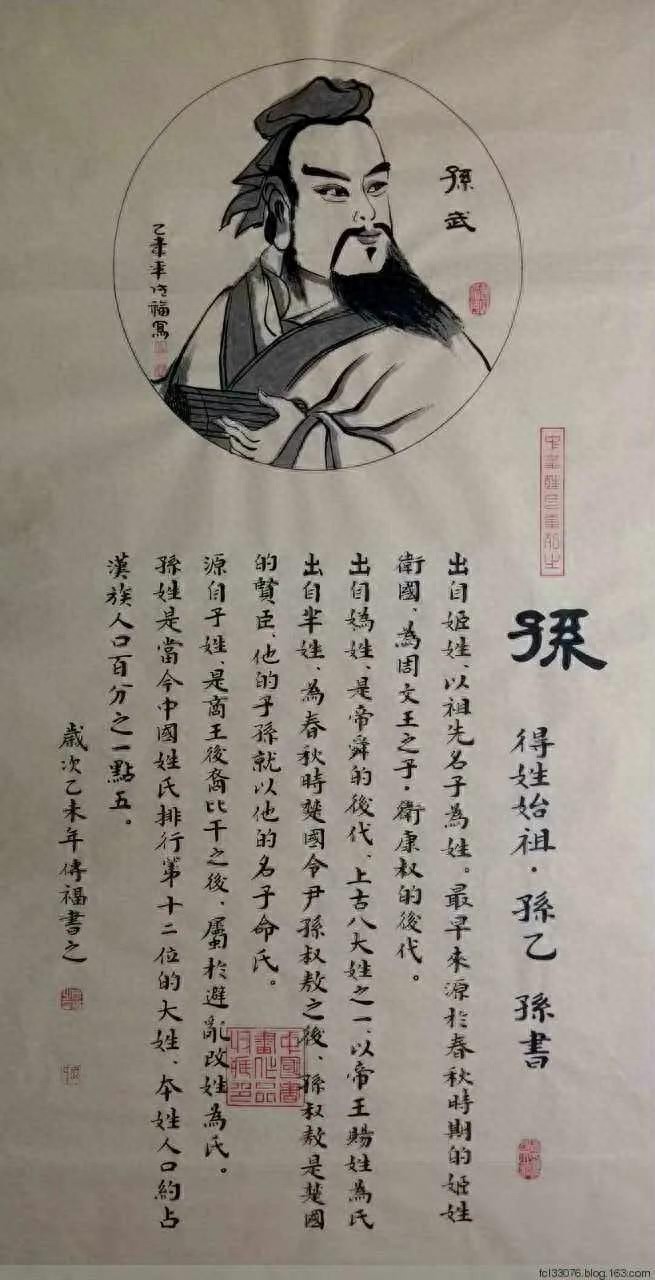 孫武
乙未年傳福寫
孫
得姓始祖·孫乙 孫書
出自姬姓、以祖先名子為姓。最早來源於春秋時期的姬姓
衛國、為周文王之子·衛康叔的後代。
出自媯姓、是帝舜的後代、上古八大姓之一、以帝王賜姓為氏
出自芈姓、為春秋時楚國令尹孫叔敖之後、孫叔敖是楚國
的賢臣、他的子孫就以他的名子命氏。
源自子姓、是商王後裔比干之後、屬於避亂改姓為氏。
孫姓是當今中國姓氏排行第十二位的大姓、本姓人口約占
漢族人口百分之一點五。
歲次乙未年傳福書之
中國書
畫作品
收藏印
fcl33076.blog.163.com